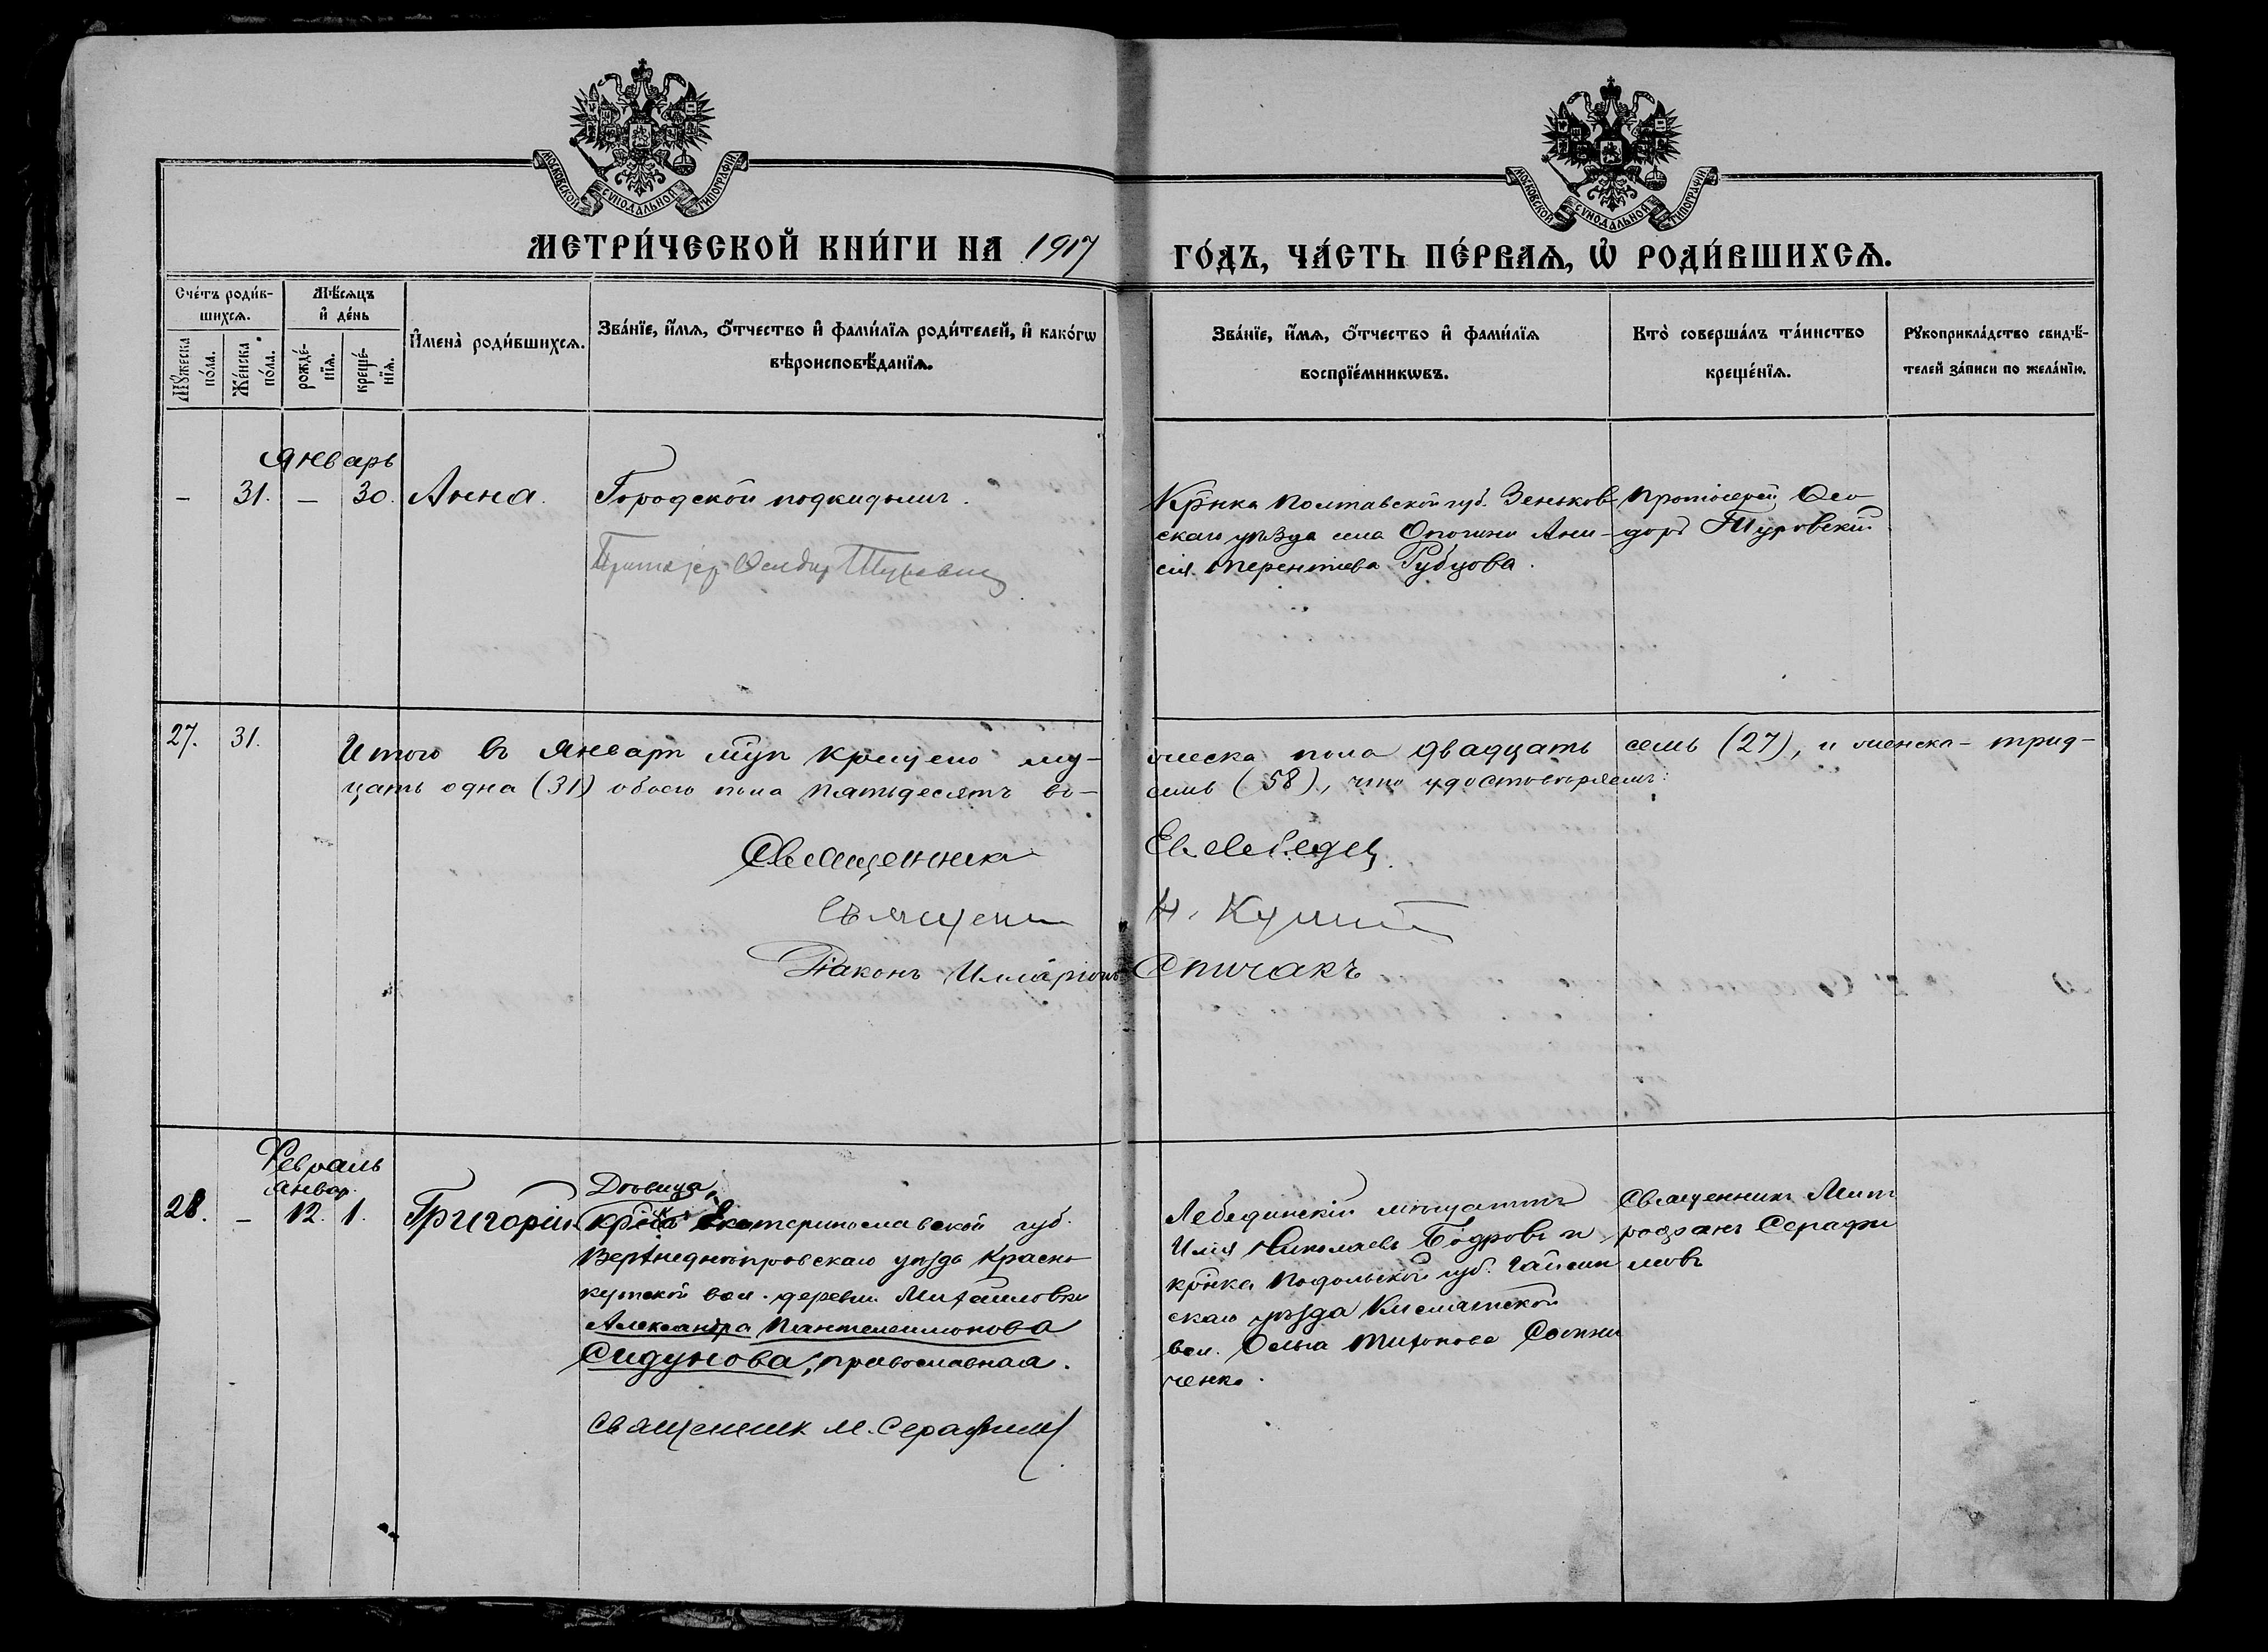 МОСКОВСКОЙ СУНОДАЛЬНОЙ ТИПОГРАФІИ
МОСКОВСКОЙ СУНОДАЛЬНОЙ ТИПОГРАФІИ
МЕТРИ́ЧЕСКОЙ КНИ́ГИ НА 1917
ГО́ДЪ, ЧА́СТЬ ПЕ́РВАѦ, Ѡ҆ РОДИ́ВШИХСѦ.
Сче́тъ роди́в-
шихсѧ.
Мѣ́сѧцъ
и҆ де́нь
Мꙋ́жеска
по́ла.
Же́нска
по́ла.
рожде́-
нїѧ.
креще́-
нїѧ.
И҆мена̀ роди́вшихсѧ.
Зва́нїе, и҆́мѧ, ѻ҆́тчество и҆ фами́лїѧ роди́телей, и҆ како́гѡ
вѣроисповѣ́данїѧ.
Зва́нїе, и҆́мѧ, ѻ҆́тчество и҆ фами́лїѧ
воспрїе́мникѡвъ.
Кто̀ соверша́лъ та́инство
креще́нїѧ.
Рꙋкоприкла́дство свидѣ́-
телей за́писи по жела́нїю.
Январь
— 31. — 30. Анна. Городской подкидышъ.
Крнка Полтавской губ. Зеньков-
скаго уѣзда села Опошни Ани-
сія Терентіева Рубцова.
Протоіерей Ѳео-
доръ Туровскій
27. 31. Итого въ Январѣ мцѣ крещено му-
жеска пола двадцать семь (27), и женска - трид-
цать одна (31) обоего пола пятьдесятъ во-
семь (58), что удостовѣряемъ:
Священникъ
Священ
Н.
Діаконъ Илларіонъ Спичакъ
Февраль
Январ.
28. — 12. 1. Григорій
Дѣвица,
крнка Екатеринославской губ.
Верхнеднѣпровскаго уѣзда Красно-
кутской вол. деревни Михайловки
Александра Пантелеимонова
Сидунова, православная.
Священник М. Серафимов
Лебединскій мѣщанинъ
Илія Николаевъ Бодровъ и
крнка Подольской губ. Гайсин
скаго уѣзда
вол. Ольга Тихонова
ченко.
Священникъ Мит
рофанъ Серафи
мовъ